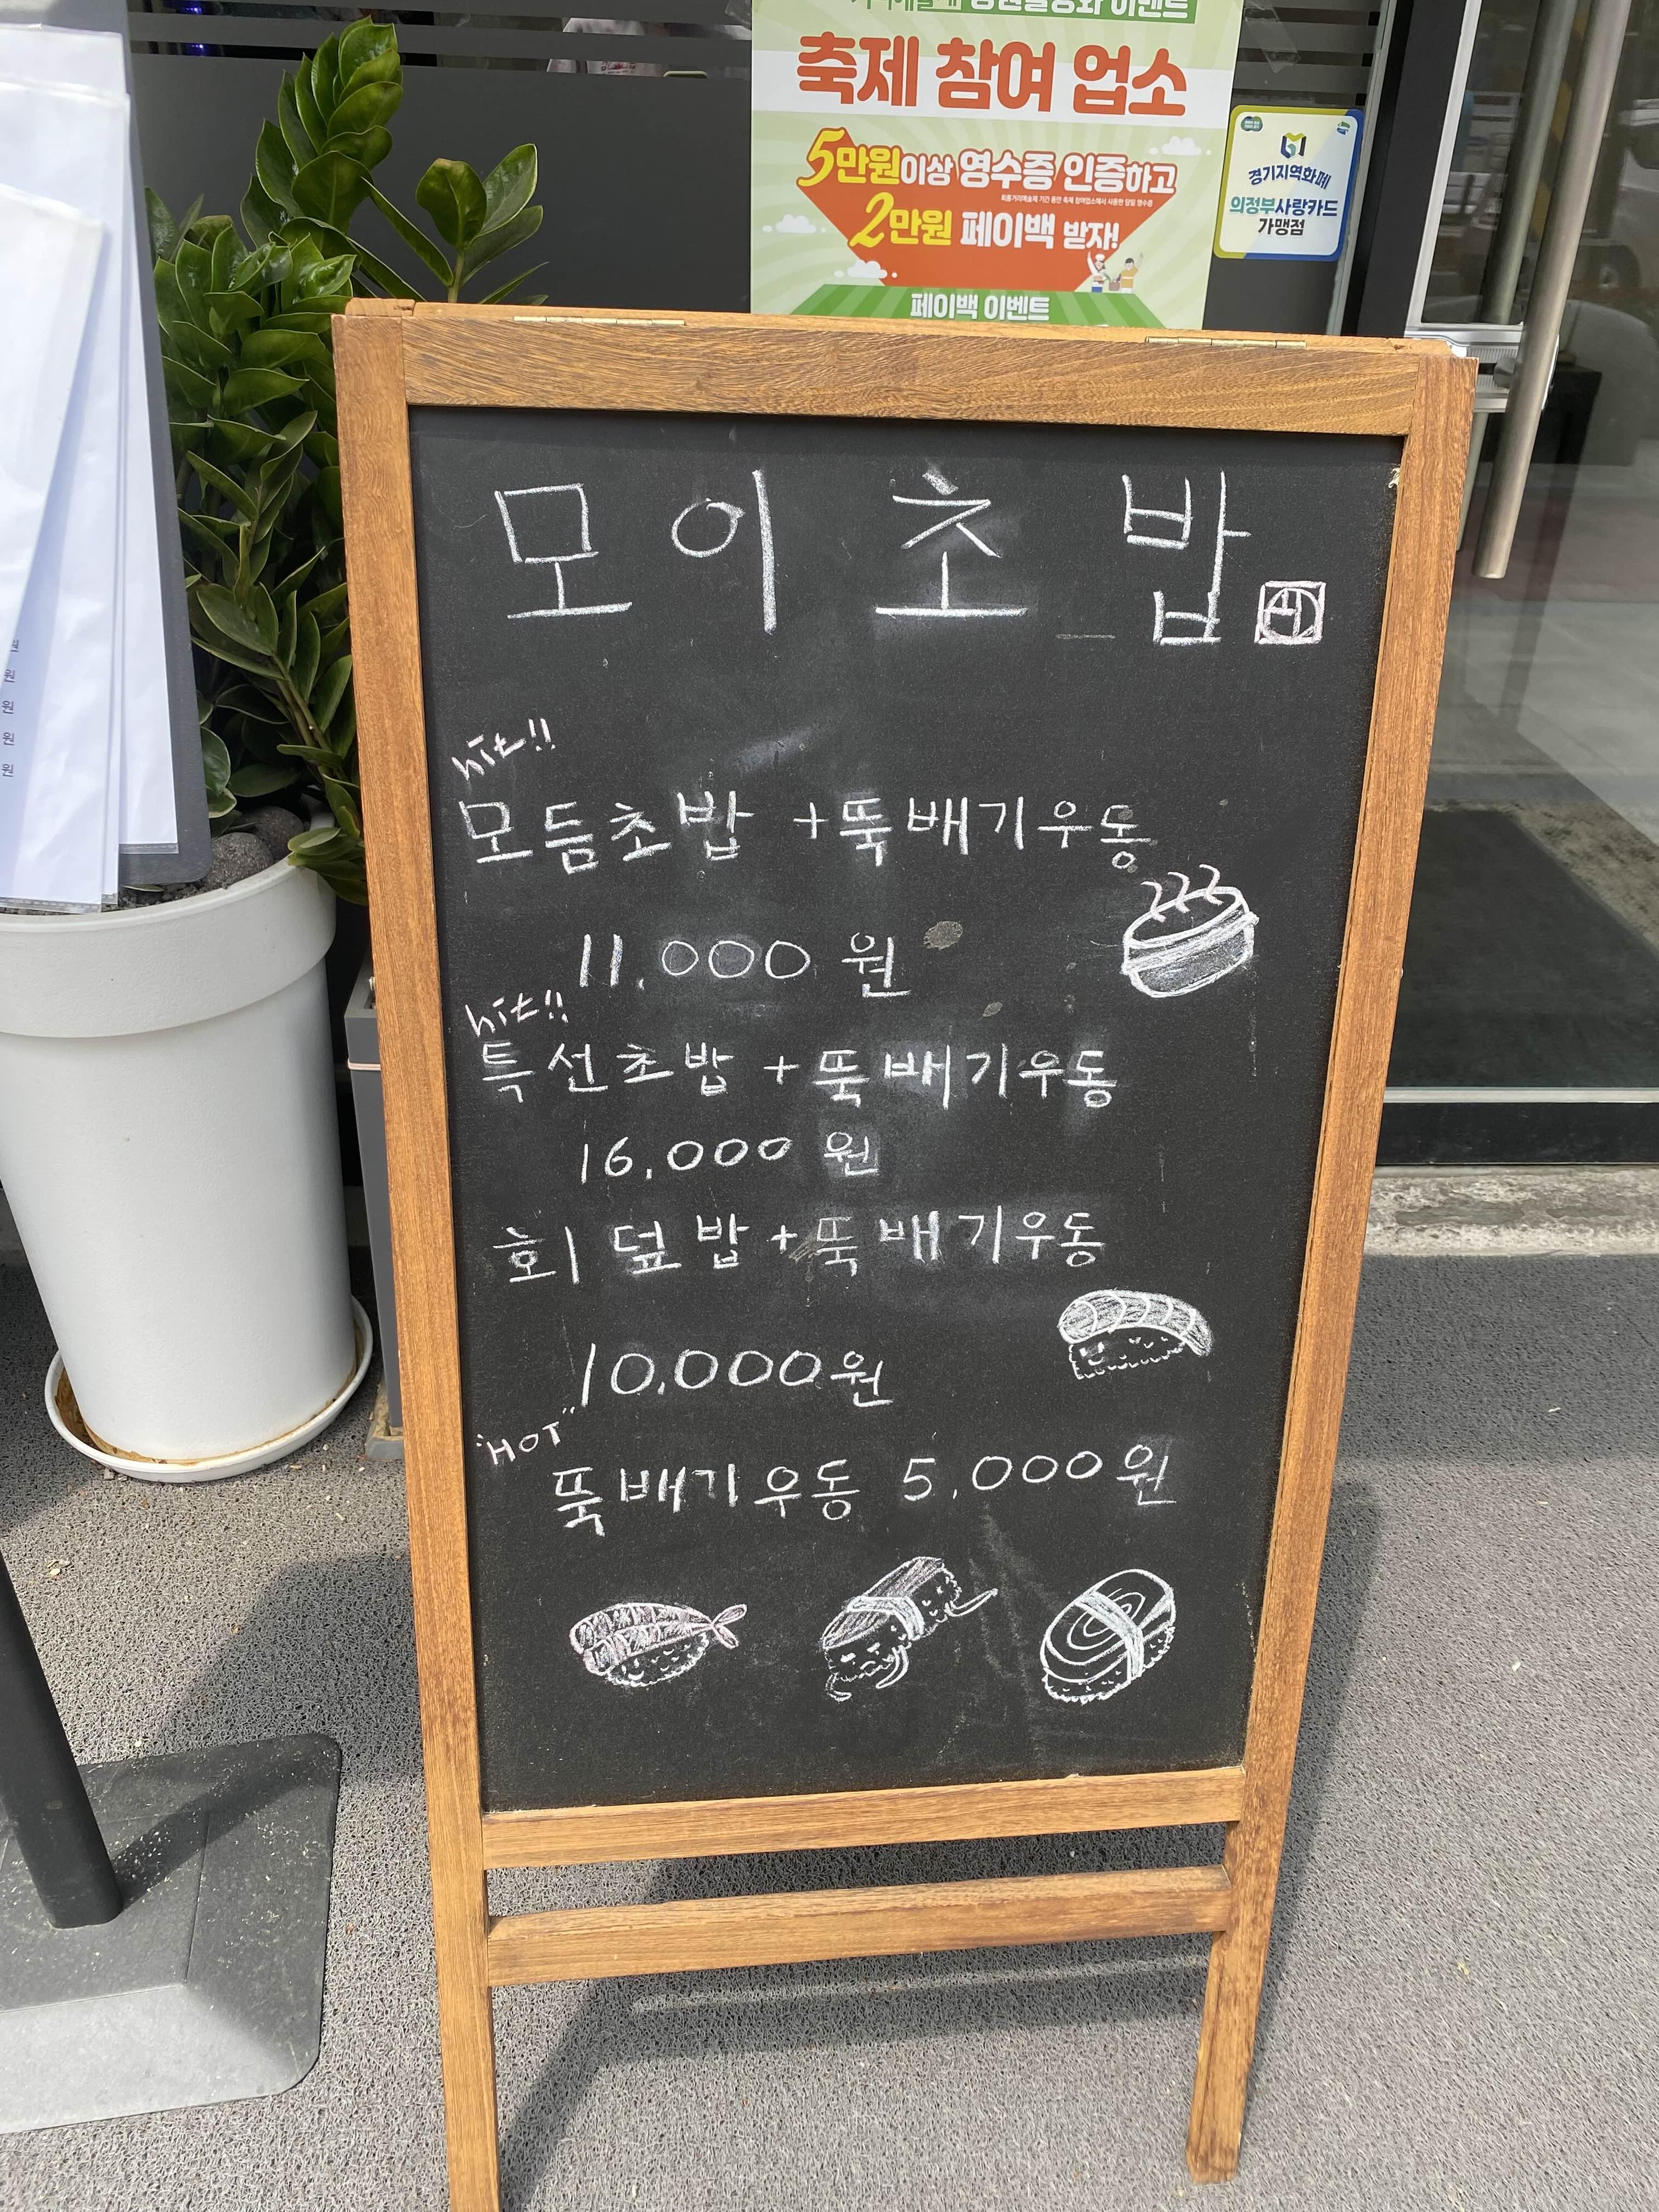 축제 참여 업소
5만원이상 영수증 인증하고
2만원 페이백 받자!
페이백 이벤트
경기지역화폐
의정부사랑카드
가맹점
모이초밥
hit!!
모듬초밥 +뚝배기우동
11,000 원
hit!!
특선초밥 + 뚝배기우동
16,000 원
회덮밥 + 뚝배기우동
10,000원
"HOT"
뚝배기우동 5,000원
원
원
원
원